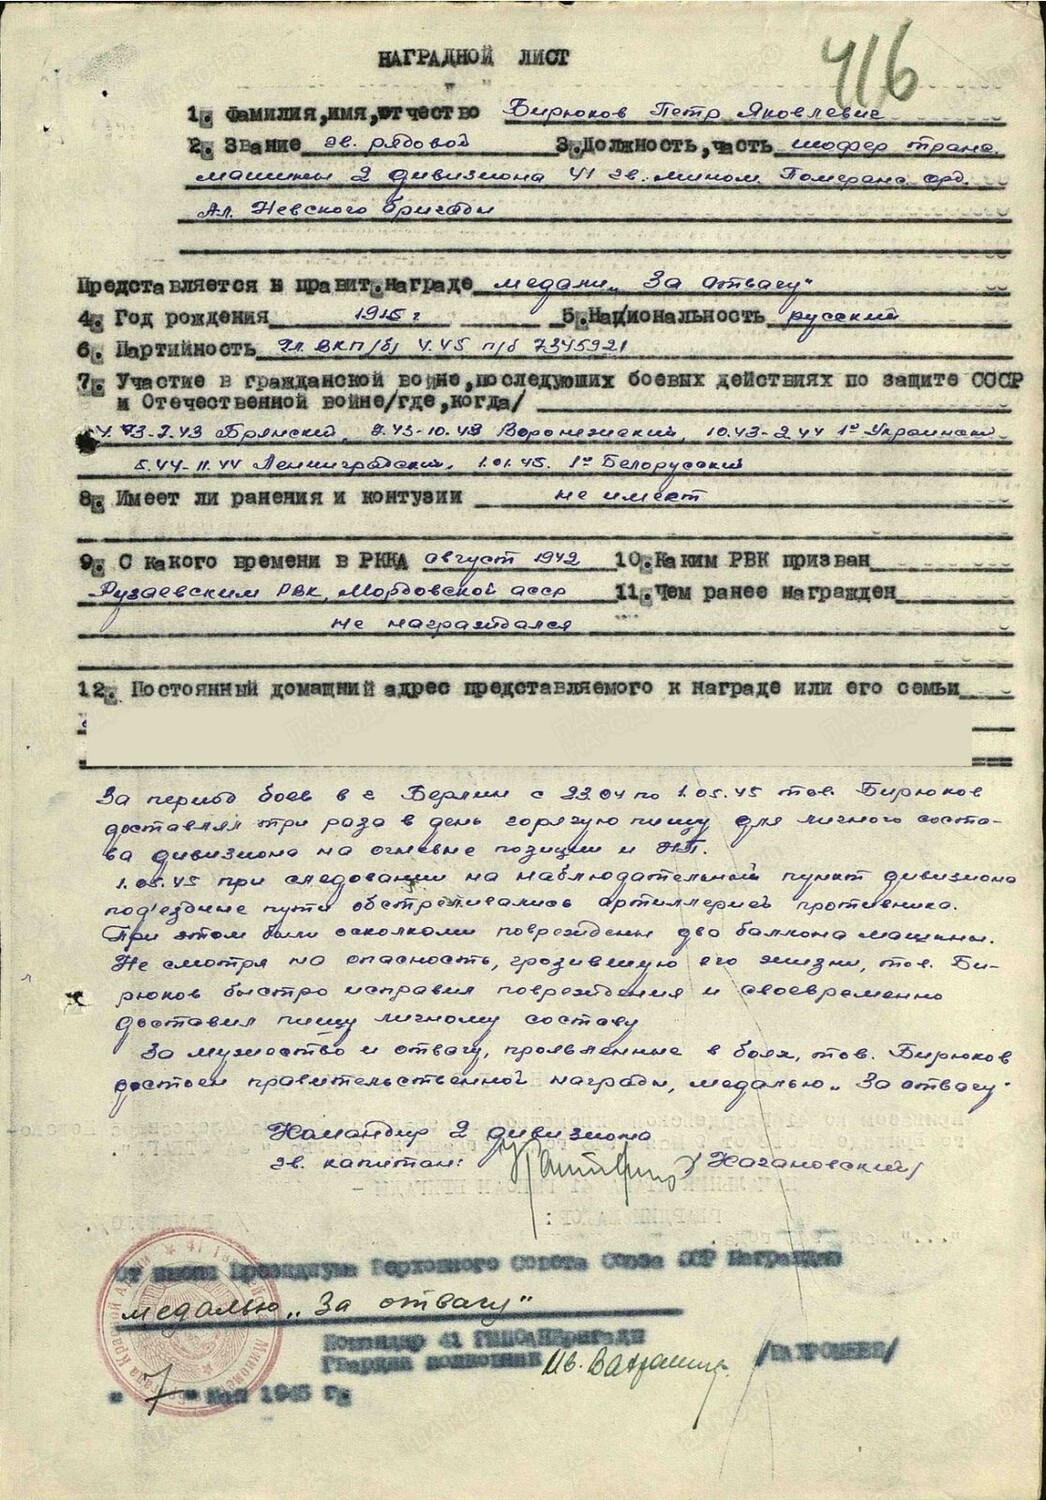 416
НАГРАДНОЙ ЛИСТ
1. Фамилия,имя,отчество Бирюков Петр Яковлевич
2. Звание гв. рядовой 3.Должность,часть шофер транс.
машины 2 дивизиона 41 гв. мином. Померанс. орд.
Ал. Невского бригады
Представляется к правит.награде медали „За отвагу"
4. Год рождения 1915 г 5.Национальность русский
6. Партийность Чл. ВКП/б/ 4.45 п/б 7345921
7. Участие в гражданской войне,последующих боевых действиях по защите СССР
и Отечественной войне/где,когда/
43-7.43 Брянский, 43-10.43 Воронежский, 10.43-2.44 1й Украинский
5.44-11.44 Ленинградский, 1.01.45. 1й Белорусский
8. Имеет ли ранения и контузии не имеет
9. С какого времени в РККА август 1942 10.Каким РВК призван
Рузаевским РВК, Мордовской асср 11.Чем ранее награжден
не награждался
12. Постоянный домашний адрес представляемого к награде или его семьи
За период боев в г Берлин с 23.04 по 1.05.45 тов. Бирюков
доставлял три раза в день горячую пищу для личного соста-
ва дивизиона на огневые позиции и НП.
1.05.45 при следовании на наблюдательный пункт дивизиона
под'ездные пути обстреливались артиллерией противника.
При этом были осколками повреждены два балкона машины.
Не смотря на опасность, грозившую его жизни, тов. Би-
рюков быстро исправил повреждения и своевременно
доставил пищу личному составу
За мужество и отвагу, проявленные в боях, тов. Бирюков
достоен правительственной награды, медалью „За отвагу"
Командир 2 дивизиона
гв. капитан: /Кагановский/
От имени Президиума Верховного Совета Союза ССР награждаю
медалью „За отвагу"
Командир 41 ГвМинБригады
Гвардии полковник /ВАХРОМЕЕВ/
"7" мая 1945 г.